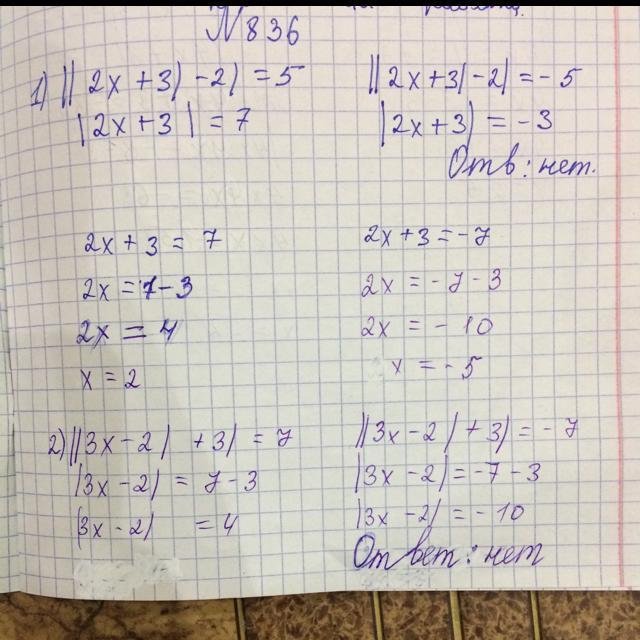 N836
1) ||2x+3|-2|=5
||2x+3|-2|=-5
|2x+3|=7
|2x+3|=-3
Отв: нет.
2x+3=7
2x+3=-7
2x=7-3
2x=-7-3
2x=4
2x=-10
x=2
x=-5
2) ||3x-2|+3|=7
||3x-2|+3|=-7
|3x-2|=7-3
|3x-2|=-7-3
|3x-2|=4
|3x-2|=-10
Ответ: нет